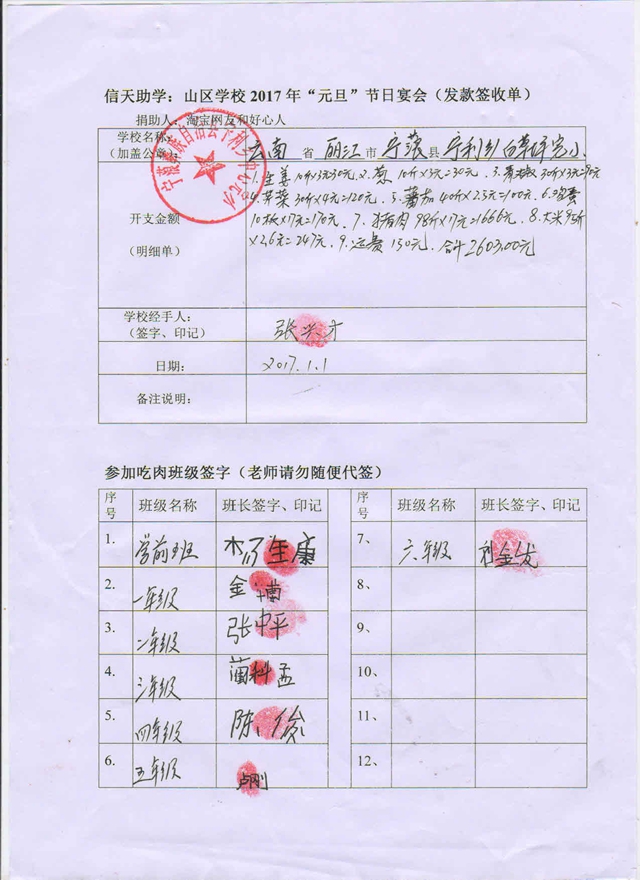 信天助学：山区学校 2017 年“元旦”节日宴会（发款签收单）
捐助人：淘宝网友和好心人
学校名称：
（加盖公章）
云南 省 丽江 市 宁蒗 县 宁利乡 完小
1.生姜10斤×3元30元、2.葱 10斤×3元=30元、3.青椒30斤×3元=90元
4.芹菜30斤×4元=120元、5.蕃茄40斤×2.5元=100元、6.鸡蛋
开支金额
10板×17元=170元、7.猪肉98斤×17元=1666元、8.大米95斤
（明细单）
×2.6元=247元、9.运费150元、合计2603.00元
学校经手人：
（签字、印记）
张兴才
日期：
2017.1.1
备注说明：
参加吃肉班级签字（老师请勿随便代签）
序号 班级名称 班长签字、印记 序号 班级名称 班长签字、印记
1. 学前班 生康 7、 六年级 和金发
2. 一年级 金 8、
3. 二年级 张中平 9、
4. 三年级 蔺科孟 10、
5. 四年级 陈俊 11、
6. 五年级 卢刚 12、